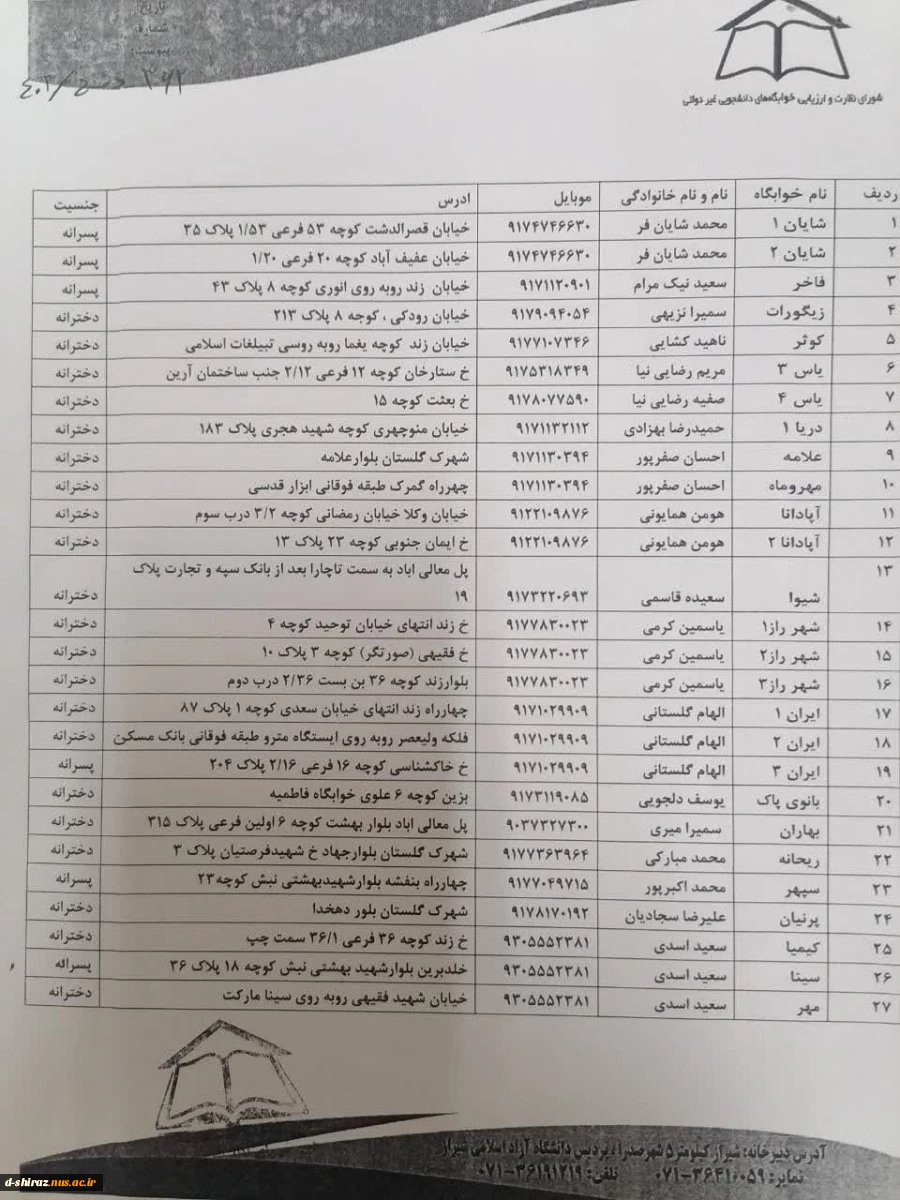 تاریخ:
شماره:
پیوست:
شورای نظارت و ارزیابی خوابگاه‌های دانشجویی غیر دولتی
ردیف نام خوابگاه نام و نام خانوادگی موبایل ادرس جنسیت
۱ شایان ۱ محمد شایان فر ۹۱۷۴۷۴۶۶۳۰ خیابان قصرالدشت کوچه ۵۳ فرعی ۱/۵۳ پلاک ۳۵ پسرانه
۲ شایان ۲ محمد شایان فر ۹۱۷۴۷۴۶۶۳۰ خیابان عفیف آباد کوچه ۲۰ فرعی ۱/۲۰ پسرانه
۳ فاخر سعید نیک مرام ۹۱۷۱۱۲۰۹۰۱ خیابان زند روبه روی انوری کوچه ۸ پلاک ۴۳ پسرانه
۴ زیگورات سمیرا نزیهی ۹۱۷۹۰۹۴۰۵۴ خیابان رودکی ، کوجه ۸ پلاک ۲۱۳ دخترانه
۵ کوثر ناهید کشایی ۹۱۷۷۱۰۷۳۴۶ خیابان زند کوچه یغما روبه روسی تبیلغات اسلامی دخترانه
۶ یاس ۳ مریم رضایی نیا ۹۱۷۵۳۱۸۳۴۹ خ ستارخان کوچه ۱۲ فرعی ۲/۱۲ جنب ساختمان آرین دخترانه
۷ یاس ۴ صفیه رضایی نیا ۹۱۷۸۰۷۷۵۹۰ خ بعثت کوچه ۱۵ دخترانه
۸ دریا ۱ حمیدرضا بهزادی ۹۱۷۱۱۳۲۱۱۲ خیابان منوچهری کوچه شهید هجری پلاک ۱۸۳ دخترانه
۹ علامه احسان صفرپور ۹۱۷۱۱۳۰۳۹۴ شهرک گلستان بلوارعلامه دخترانه
۱۰ مهروماه احسان صفرپور ۹۱۷۱۱۳۰۳۹۴ چهرراه گمرک طبقه فوقانی ابزار قدسی دخترانه
۱۱ آپادانا هومن همایونی ۹۱۲۲۱۰۹۸۷۶ خیابان وکلا خیابان رمضانی کوچه ۳/۲ درب سوم دخترانه
۱۲ آپادانا ۲ هومن همایونی ۹۱۲۲۱۰۹۸۷۶ خ ایمان جنوبی کوچه ۲۳ پلاک ۱۳ دخترانه
۱۳ شیوا سعیده قاسمی ۹۱۷۳۲۲۰۶۹۳ پل معالی اباد به سمت تاچارا بعد از بانک سپه و تجارت پلاک
۱۹ دخترانه
۱۴ شهر راز۱ یاسمین کرمی ۹۱۷۷۸۳۰۰۲۳ خ زند انتهای خیابان توحید کوچه ۴ دخترانه
۱۵ شهر راز۲ یاسمین کرمی ۹۱۷۷۸۳۰۰۲۳ خ فقیهی (صورتگر) کوچه ۳ پلاک ۱۰ دخترانه
۱۶ شهر راز۳ یاسمین کرمی ۹۱۷۷۸۳۰۰۲۳ بلوارزند کوچه ۳۶ بن بست ۲/۳۶ درب دوم دخترانه
۱۷ ایران ۱ الهام گلستانی ۹۱۷۱۰۲۹۹۰۹ چهارراه زند انتهای خیابان سعدی کوچه ۱ پلاک ۸۷ دخترانه
۱۸ ایران ۲ الهام گلستانی ۹۱۷۱۰۲۹۹۰۹ فلکه ولیعصر روبه روی ایستگاه مترو طبقه فوقانی بانک مسکن دخترانه
۱۹ ایران ۳ الهام گلستانی ۹۱۷۱۰۲۹۹۰۹ خ خاکشناسی کوچه ۱۶ فرعی ۲/۱۶ پلاک ۲۰۴ پسرانه
۲۰ بانوی پاک یوسف دلجویی ۹۱۷۳۱۱۹۰۸۵ بزین کوچه ۶ علوی خوابگاه فاطمیه دخترانه
۲۱ بهاران سمیرا میری ۹۰۳۷۳۲۷۳۰۰ پل معالی اباد بلوار بهشت کوچه ۶ اولین فرعی پلاک ۳۱۵ دخترانه
۲۲ ریحانه محمد مبارکی ۹۱۷۷۳۶۳۹۶۴ شهرک گلستان بلوارجهاد خ شهیدفرصتیان پلاک ۳ دخترانه
۲۳ سپهر محمد اکبرپور ۹۱۷۷۰۴۹۷۱۵ چهارراه بنفشه بلوارشهیدبهشتی نبش کوچه۲۳ پسرانه
۲۴ پرنیان علیرضا سجادیان ۹۱۷۸۱۷۰۱۹۲ شهرک گلستان بلور دهخدا دخترانه
۲۵ کیمیا سعید اسدی ۹۳۰۵۵۵۲۳۸۱ خ زند کوچه ۳۶ فرعی ۳۶/۱ سمت چپ دخترانه
۲۶ سینا سعید اسدی ۹۳۰۵۵۵۲۳۸۱ خلدبرین بلوارشهید بهشتی نبش کوچه ۱۸ پلاک ۳۶ پسرانه
۲۷ مهر سعید اسدی ۹۳۰۵۵۵۲۳۸۱ خیابان شهید فقیهی روبه روی سینا مارکت دخترانه
آدرس دبیرخانه: شیراز کیلومتر۵ شهرصدرا ، پردیس دانشگاه آزاد اسلامی شیراز
نمابر: ۳۶۴۱۰۰۵۹-۰۷۱ تلفن: ۳۶۱۹۱۲۱۹-۰۷۱
d-shiraz.nus.ac.ir